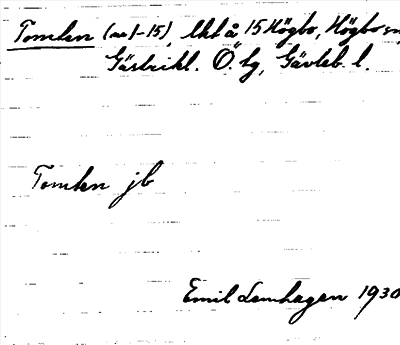 Tomten (nr 1-15), Mat å 15 Högbo, Högbo sn,
Gästrikl. Ö. tg, Gävleb. l.
Tomten jb
Emil Lemhagen 1930